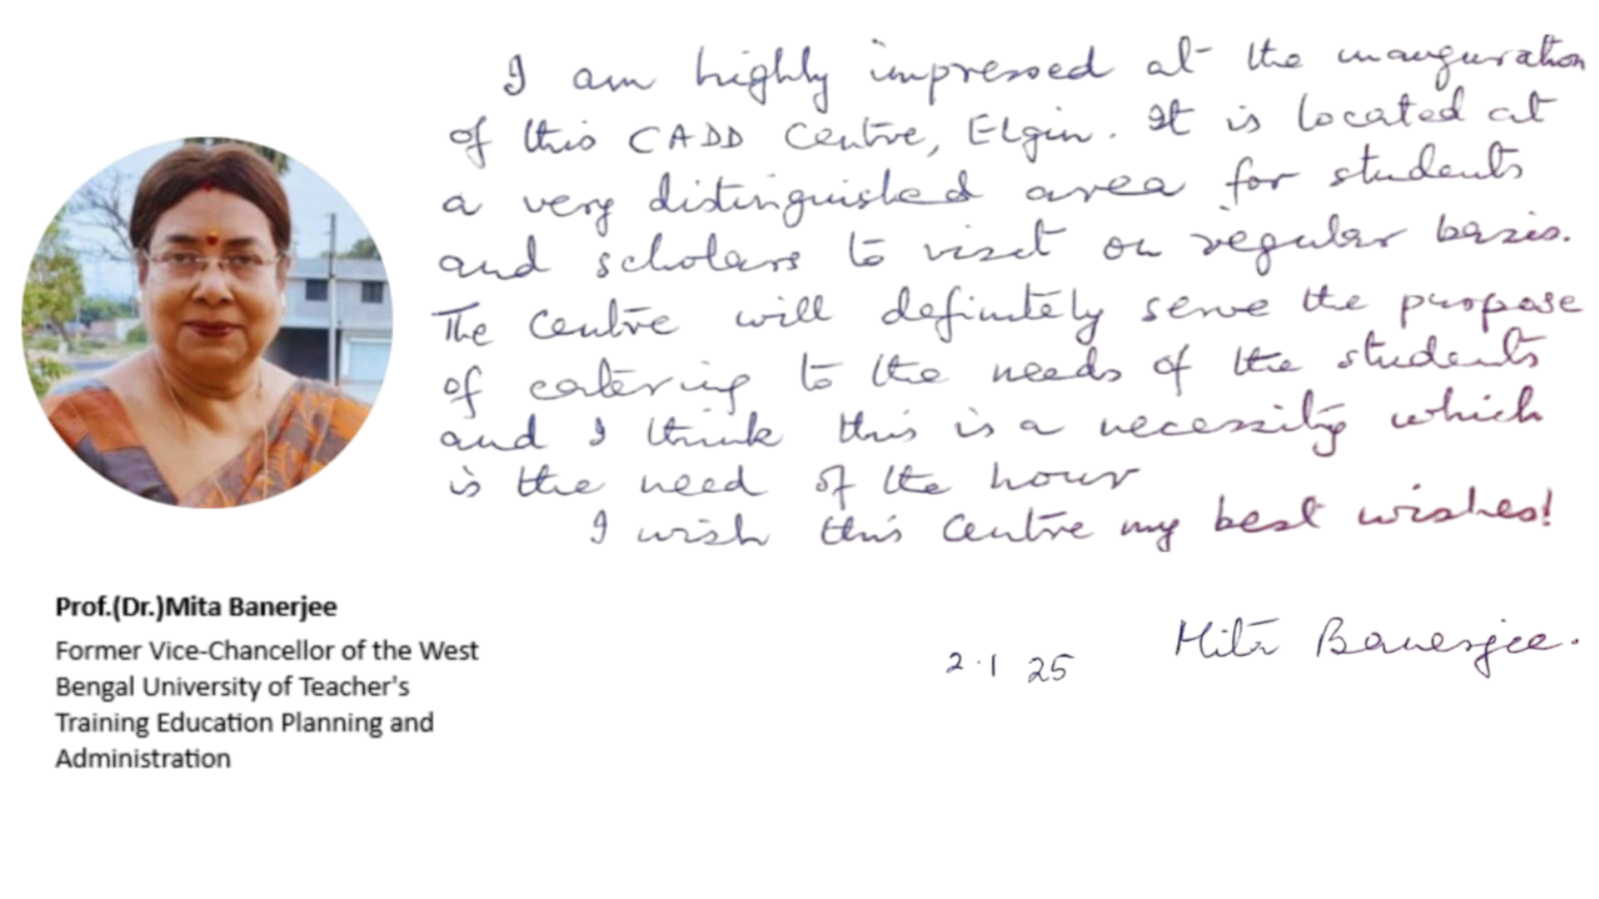 I am highly impressed at the inauguration
of this CADD Centre, Elgin. It is located at
a very distinguished area for students
and scholars to visit on regular basis.
The Centre will definitely serve the purpose
of catering to the needs of the students
and I think this is a necessity which
is the need of the hour
I wish this Centre my best wishes!
2.1 25 Mita Banerjee.
Prof.(Dr.)Mita Banerjee
Former Vice-Chancellor of the West
Bengal University of Teacher's
Training Education Planning and
Administration